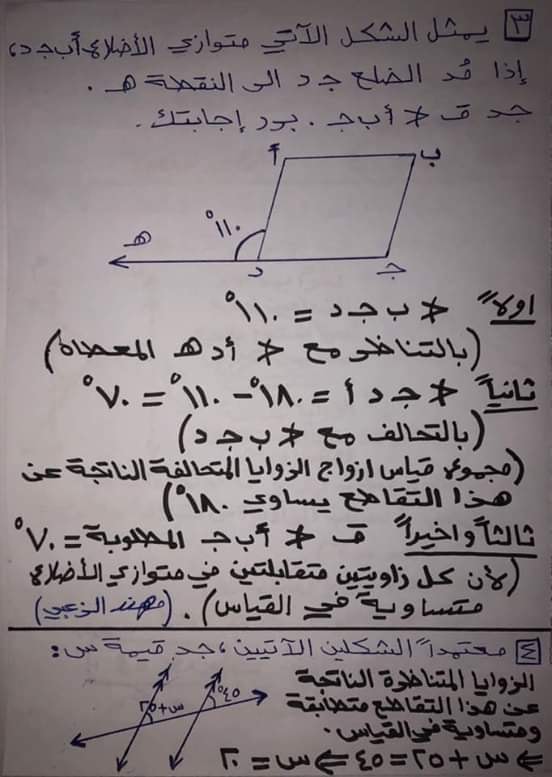 ٣ يمثل الشكل الآتي متوازي الأضلاع أ ب ج د،
إذا مُد الضلع ج د الى النقطة هـ.
جد ق ∢ أ ب جـ. برر إجابتك.
أ
ب
١١٠°
هـ
د
جـ
اولاً ∢ ب ج د = ١١٠°
(بالتناظر مع ∢ أ د هـ المعطاة)
ثانياً ∢ ج د أ = ١٨٠° - ١١٠° = ٧٠°
(بالتحالف مع ∢ ب ج د)
(مجموع قياس ازواج الزوايا المتحالفة الناتجة عن
هذا التقاطع يساوي ١٨٠°)
ثالثاً واخيراً ق ∢ أ ب جـ المطلوبة = ٧٠°
(لأن كل زاويتين متقابلتين في متوازي الأضلاع
متساوية في القياس). (مهند الزعبي)
٤ معتمداً الشكلين الآتيين، جد قيمة س:
الزوايا المتناظرة الناتجة
عن هذا التقاطع متطابقة
ومتساوية في القياس.
٤٥°
س+٢٥°
⇐ س + ٢٥ = ٤٥ ⇐ س = ٢٠